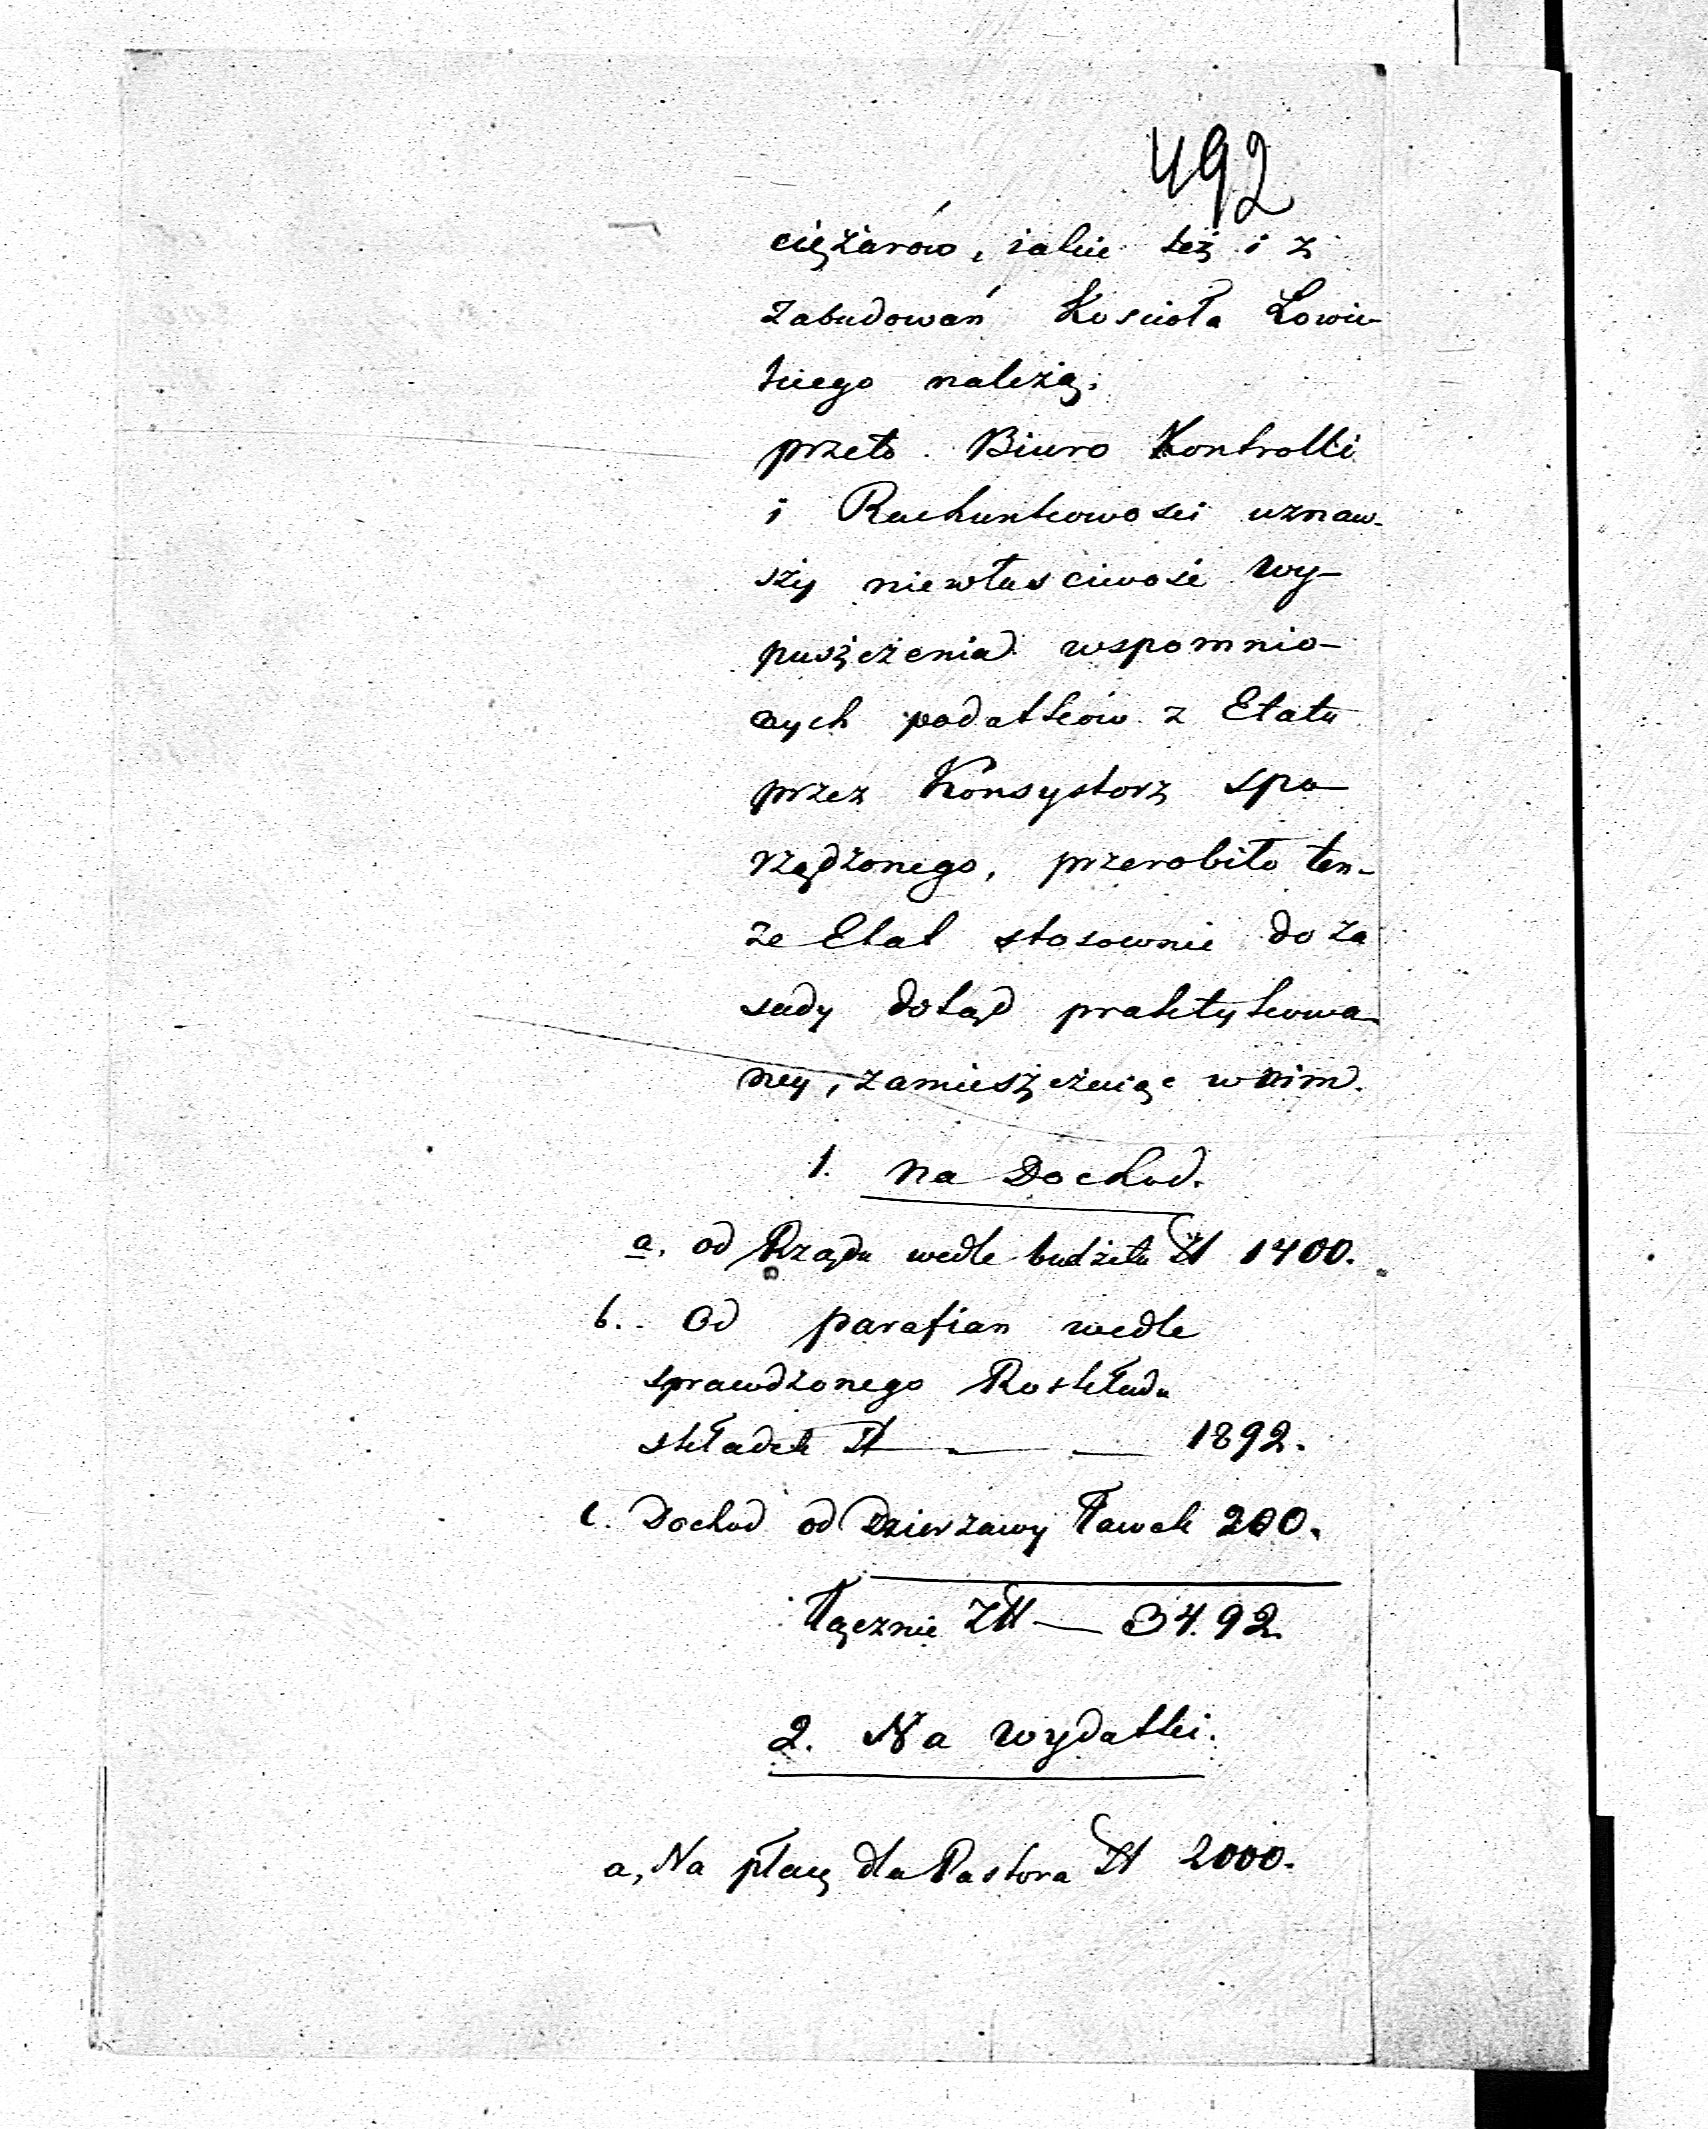 492
ciężarów, iakie też i z
zabudowań Kościoła Łowic-
kiego należą;
przeto Biuro Kontrolli
i Rachunkowości uznaw-
szy niewłaściwość wy-
puszczenia wspomnio-
nych podatków z Etatu
przez Konsystorz spo-
rządzonego, przerobiło ten-
że Etat stosownie do za
sady dotąd praktykowa-
ney, zamieszczaiąc w nim.
1. Na Dochod.
a. od Rządu wedle budżetu Zł 1400.
b. Od parafian wedle
sprawdzonego Rozkładu
składek Zł — — 1892.
c. Dochod od Dzierżawy Ławek 200.
Łącznie Złł — 3492.
2. Na wydatki.
a, Na płacę dla Pastora Zł 2000.